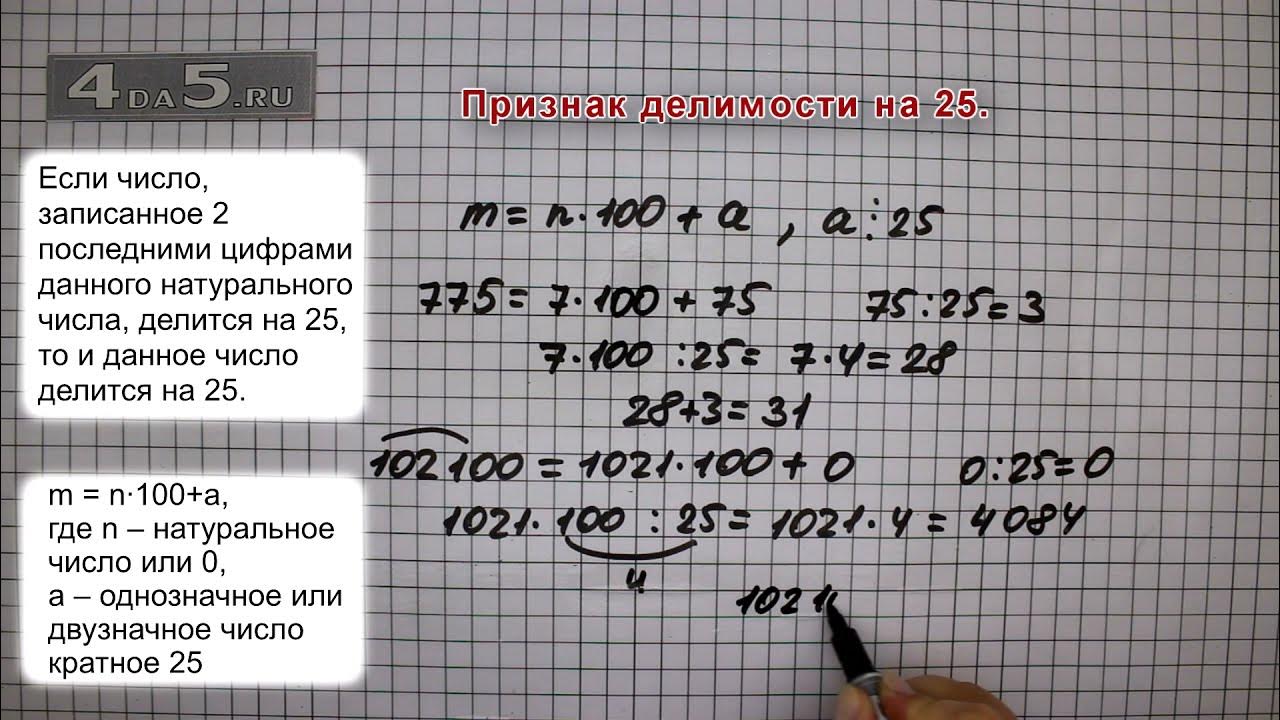 4DA5.RU
Признак делимости на 25.
Если число,
записанное 2
последними цифрами
данного натурального
числа, делится на 25,
то и данное число
делится на 25.
m = n·100+a,
где n – натуральное
число или 0,
a – однозначное или
двузначное число
кратное 25
m = n·100 + a , a⋮25
775 = 7·100 + 75 75:25=3
7·100 :25= 7·4=28
28+3=31
102100 = 1021·100 + 0 0:25=0
1021·100 : 25= 1021·4 = 4084
4
1021